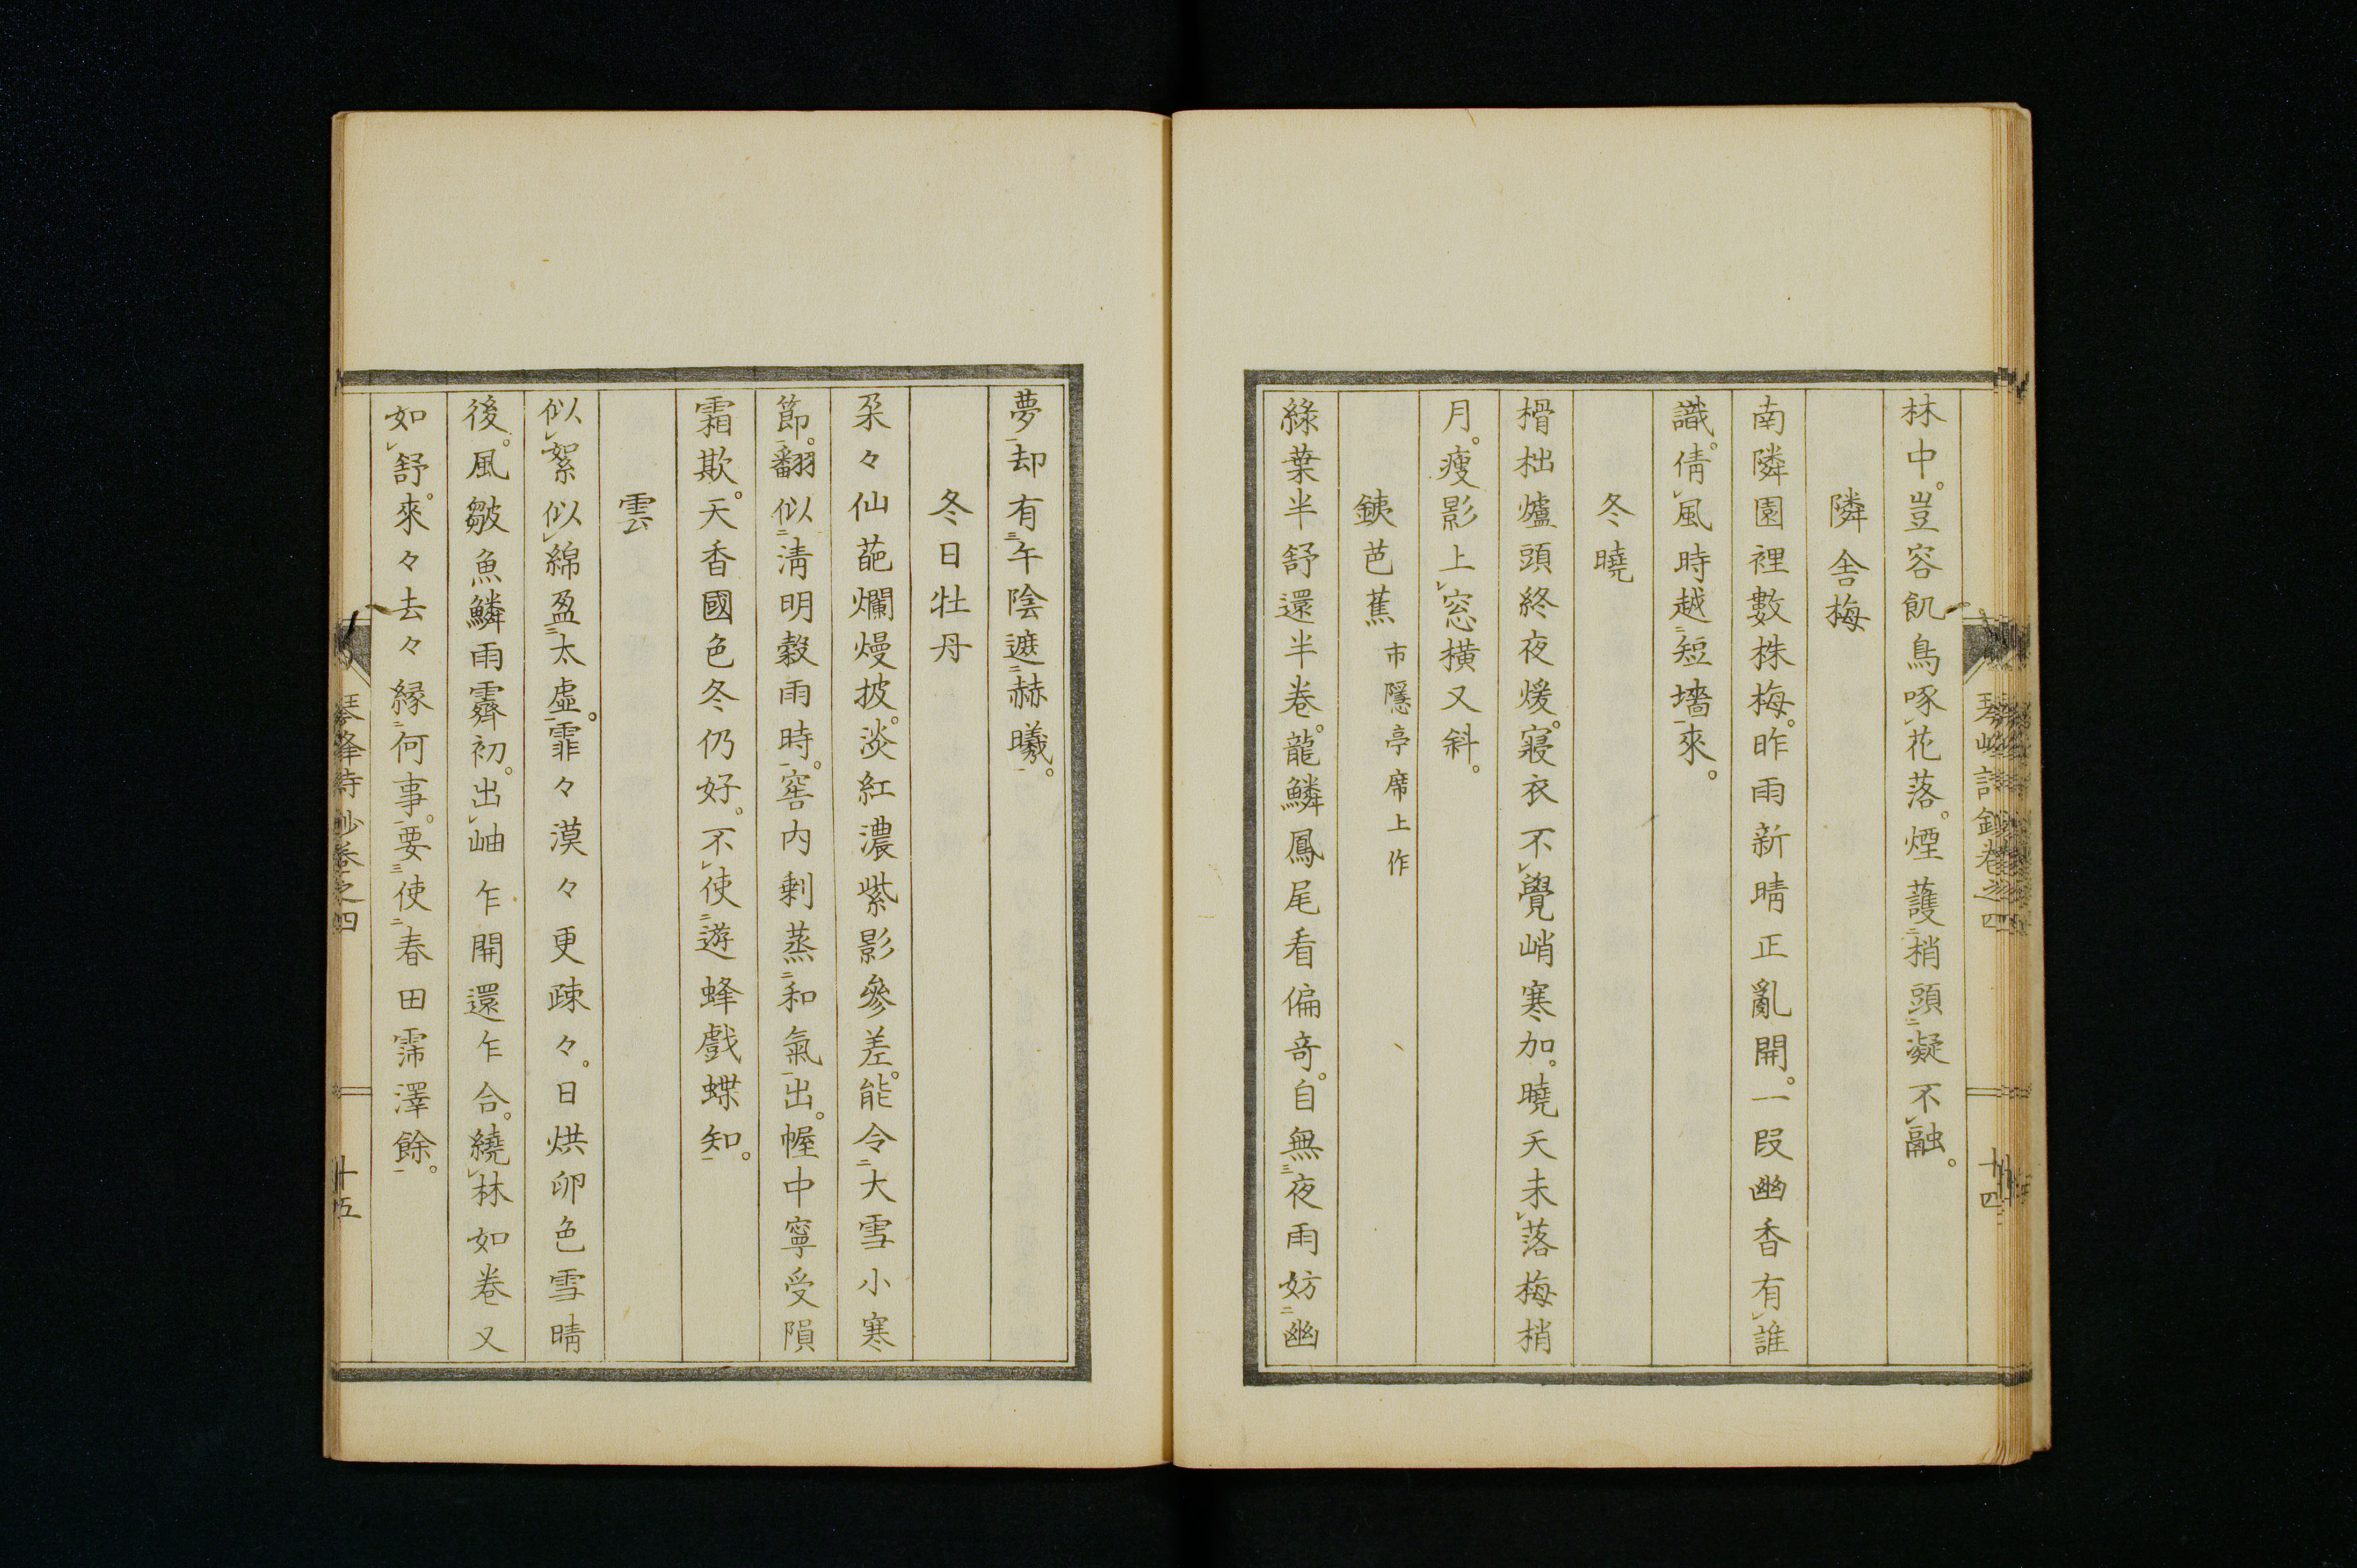 林中。豈容飢鳥啄㆑花落。煙護㆓梢頭㆒凝不㆑融。
隣舍梅
南隣園裡數株梅。昨雨新晴正亂開。一段幽香有㆑誰
識。倩㆑風時越㆓短墻㆒來。
冬曉
榾柮爐頭終夜煖。寢衣不㆑覺峭寒加。曉天未㆑落梅梢
月。瘦影上㆑窓橫又斜。
銕芭蕉 市隱亭席上作
綠葉半舒還半卷。龍鱗鳳尾看偏奇。自無㆘夜雨妨㆓幽
琴峰詩鈔卷之四
十四
夢㆒却有㆘午陰遮㆓赫曦㆒。
冬日牡丹
朶々仙葩爛熳披。淡紅濃紫影參差。能令㆓大雪小寒
節㆒。翻似㆓淸明穀雨時㆒。窖内剩蒸㆓和氣㆒出。幄中寧受隕
霜欺。天香國色冬仍好。不㆑使㆓遊蜂戲蝶知㆒。
雲
似㆑絮似㆑綿盈㆓太虛㆒。霏々漠々更疎々。日烘卵色雪晴
後。風皺魚鱗雨霽初。出㆑岫乍開還乍合。繞㆑林如卷又
如㆑舒。來々去々緣㆓何事㆒。要㆘使㆓春田霈澤餘㆒。
琴峰詩鈔卷之四
十五